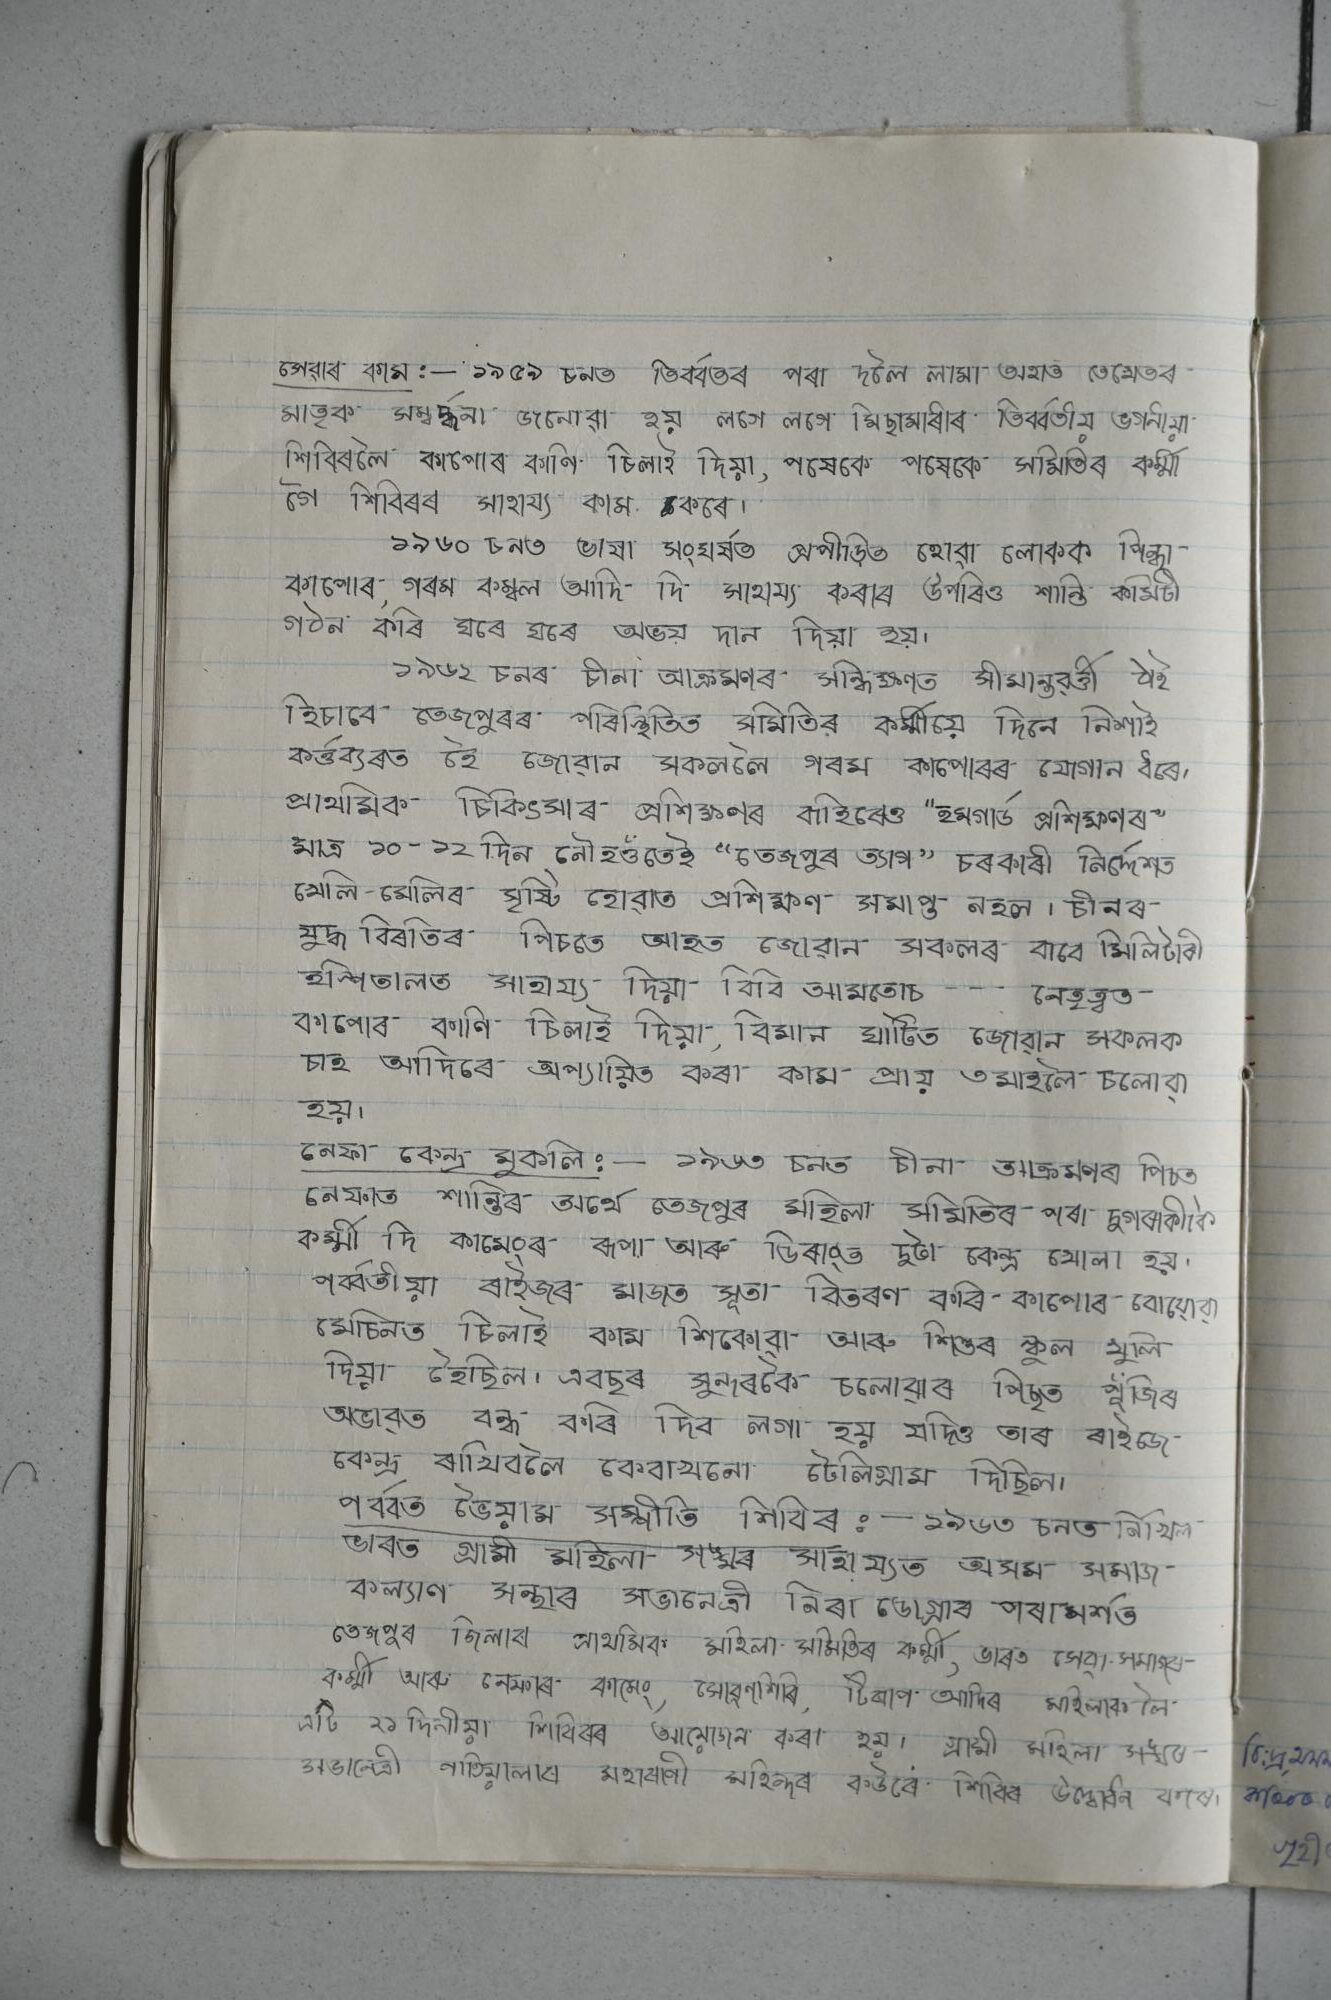 সেৱাৰ কাম :— ১৯৫৯ চনত তিব্বতৰ পৰা দলৈ লামা অহাত তেখেতৰ
মাতৃক সম্বৰ্দ্ধনা জনোৱা হয় লগে লগে মিছামাৰীৰ তিব্বতীয় ভগনীয়া
শিবিৰলৈ কাপোৰ কানি চিলাই দিয়া, পষেকে পষেকে সমিতিৰ কৰ্ম্মী
গৈ শিবিৰৰ সাহায্য কাম কৰে।
১৯৬০ চনত ভাষা সংঘৰ্ষত প্ৰপীড়িত হোৱা লোকক পিন্ধা
কাপোৰ, গৰম কম্বল আদি দি সাহায্য কৰাৰ উপৰিও শান্তি কমিটী
গঠন কৰি ঘৰে ঘৰে অভয় দান দিয়া হয়।
১৯৬২ চনৰ চীনা আক্ৰমণৰ সন্ধিক্ষণত সীমান্তৱৰ্ত্তী ঠাই
হিচাবে তেজপুৰৰ পৰিস্থিতিত সমিতিৰ কৰ্ম্মীয়ে দিনে নিশাই
কৰ্ত্তব্যৰত হৈ জোৱান সকললৈ গৰম কাপোৰৰ যোগান ধৰে।
প্ৰাথমিক চিকিৎসাৰ প্ৰশিক্ষণৰ বাহিৰেও "হমগাৰ্ড প্ৰশিক্ষণৰ"
মাত্ৰ ১০-১২ দিন নৌহওঁতেই "তেজপুৰ ত্যাগ" চৰকাৰী নিৰ্দ্দেশত
খেলি-মেলিৰ সৃষ্টি হোৱাত প্ৰশিক্ষণ সমাপ্ত নহল। চীনৰ
যুদ্ধ বিৰতিৰ পিচতে আহত জোৱান সকলৰ বাবে মিলিটাৰী
হস্পিতালত সাহায্য দিয়া বিবি আমতোচ --- নেতৃত্বত
কাপোৰ কানি চিলাই দিয়া, বিমান ঘাটিত জোৱান সকলক
চাহ আদিৰে অপ্যায়িত কৰা কাম প্ৰায় ৩ মাহলৈ চলোৱা
হয়।
নেফা কেন্দ্ৰ মুকলি :— ১৯৬৩ চনত চীনা আক্ৰমণৰ পিচত
নেফাত শান্তিৰ অৰ্থে তেজপুৰ মহিলা সমিতিৰ পৰা দুগৰাকীকৈ
কৰ্ম্মী দি কামেংৰ ৰূপা আৰু ডিৰাংত দুটা কেন্দ্ৰ খোলা হয়।
পৰ্ব্বতীয়া ৰাইজৰ মাজত সূতা বিতৰণ কৰি কাপোৰ বোয়োৱা
মেচিনত চিলাই কাম শিকোৱা আৰু শিশুৰ স্কুল খুলি
দিয়া হৈছিল। এবছৰ সুন্দৰকৈ চলোৱাৰ পিছত পুঁজিৰ
অভাৱত বন্ধ কৰি দিব লগা হয় যদিও তাৰ ৰাইজে
কেন্দ্ৰ ৰাখিবলৈ কেবাখনো টেলিগ্ৰাম দিছিল।
পৰ্ব্বত ভৈয়াম সম্প্ৰীতি শিবিৰ :— ১৯৬৩ চনত নিখিল
ভাৰত গ্ৰামী মহিলা সঙ্ঘৰ সাহায্যত অসম সমাজ
কল্যাণ সন্থাৰ সভানেত্ৰী নিৰা ডোগ্ৰাৰ পৰামৰ্শত
তেজপুৰ জিলাৰ প্ৰাথমিক মহিলা সমিতিৰ কৰ্ম্মী, ভাৰত সেৱা সমাজৰ
কৰ্ম্মী আৰু নেফাৰ কামেং, সোৱণশিৰি, টিৰাপ আদিৰ মহিলাক লৈ
এটি ২১ দিনীয়া শিবিৰৰ আয়োজন কৰা হয়। গ্ৰামী মহিলা সঙ্ঘৰ
সভানেত্ৰী পাতিয়ালাৰ মহাৰাণী মহিন্দৰ কউৰে শিবিৰ উদ্বোধন কৰে।